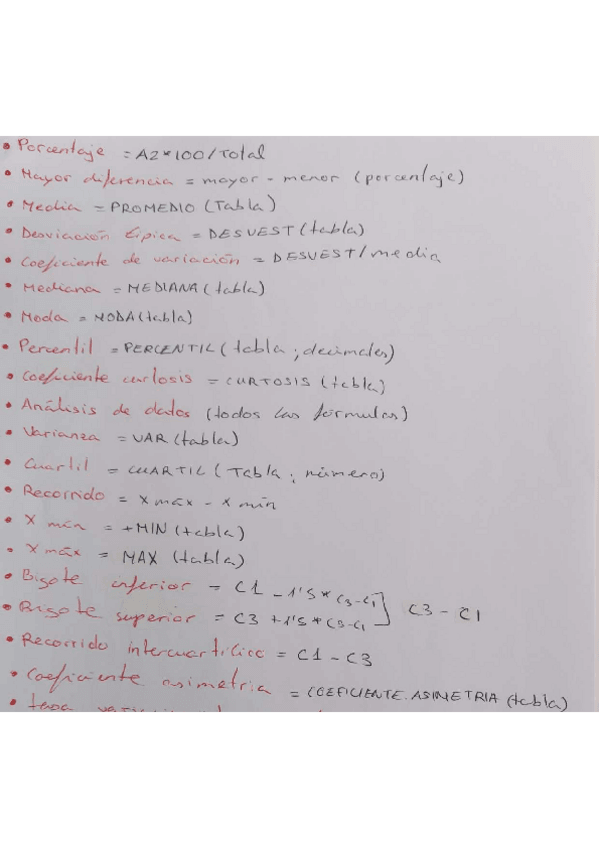 • Porcentaje = A2*100/Total
• Mayor diferencia = mayor - menor (porcentaje)
• Media = PROMEDIO (Tabla)
• Desviación típica = DESVEST (tabla)
• Coeficiente de variación = DESVEST/media
• Mediana = MEDIANA (tabla)
• Moda = MODA (tabla)
• Percentil = PERCENTIL (tabla ; decimales)
• Coeficiente curtosis = CURTOSIS (tabla)
• Análisis de datos (todos las fórmulas)
• Varianza = VAR (tabla)
• Cuartil = CUARTIL (Tabla ; número)
• Recorrido = X máx - X mín
• X mín = +MIN (tabla)
• X máx = MAX (tabla)
• Bigote inferior = C1 - 1'5 * (C3-C1
• Bigote superior = C3 + 1'5 * (C3-C1 ] C3 - C1
• Recorrido intercuartílico = C1 - C3
• Coeficiente asimetria = COEFICIENTE.ASIMETRIA (tabla)